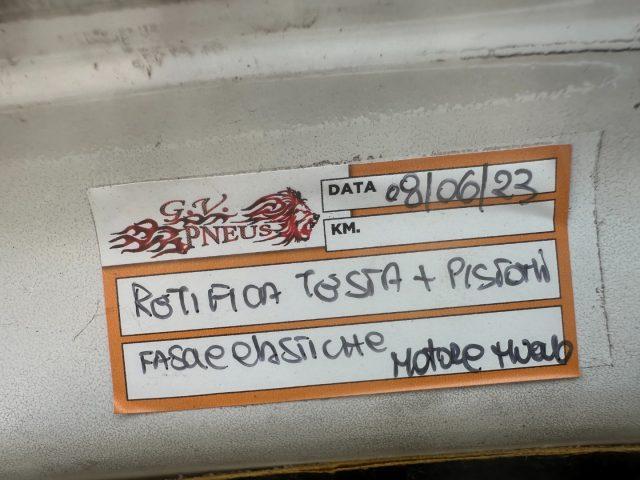 G.V.
PNEUS
DATA 08/06/23
KM.
ROTIFICA TESTA + PISTONI
FASCE ELASTICHE MOTORE NUOVO